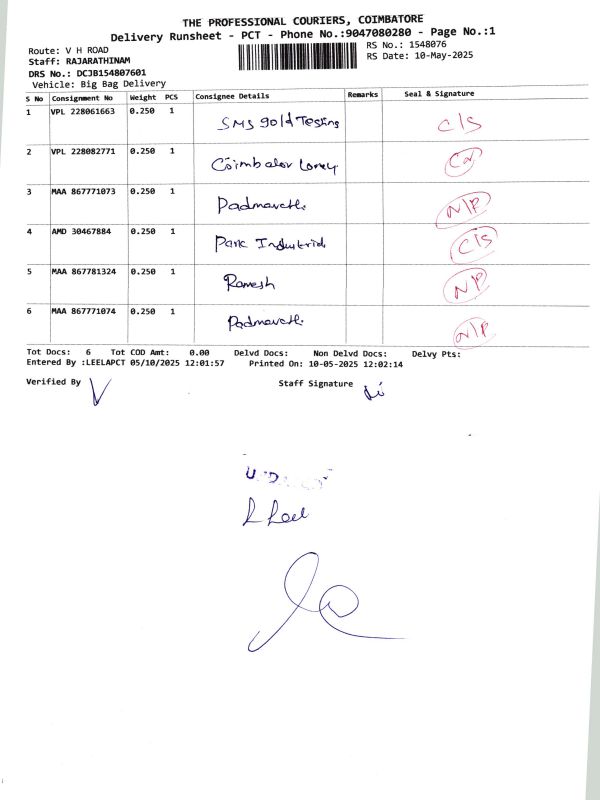 THE PROFESSIONAL COURIERS, COIMBATORE
Delivery Runsheet - PCT - Phone No.:9047080280 - Page No.:1
Route: V H ROAD
RS No.: 1548076
Staff: RAJARATHINAM
RS Date: 10-May-2025
DRS No.: DCJB154807601
Vehicle: Big Bag Delivery
S No Consignment No Weight PCS Consignee Details Remarks Seal & Signature
1 VPL 228061663 0.250 1 SMS gold Testing C/S
2 VPL 228082771 0.250 1 Coimbator
3 MAA 867771073 0.250 1 Padmavathi N/P
4 AMD 30467884 0.250 1 Park Industrial C/S
5 MAA 867781324 0.250 1 Ramesh N/P
6 MAA 867771074 0.250 1 Padmavathi N/P
Tot Docs: 6 Tot COD Amt: 0.00 Delvd Docs: Non Delvd Docs: Delvy Pts:
Entered By :LEELAPCT 05/10/2025 12:01:57 Printed On: 10-05-2025 12:02:14
Verified By Staff Signature